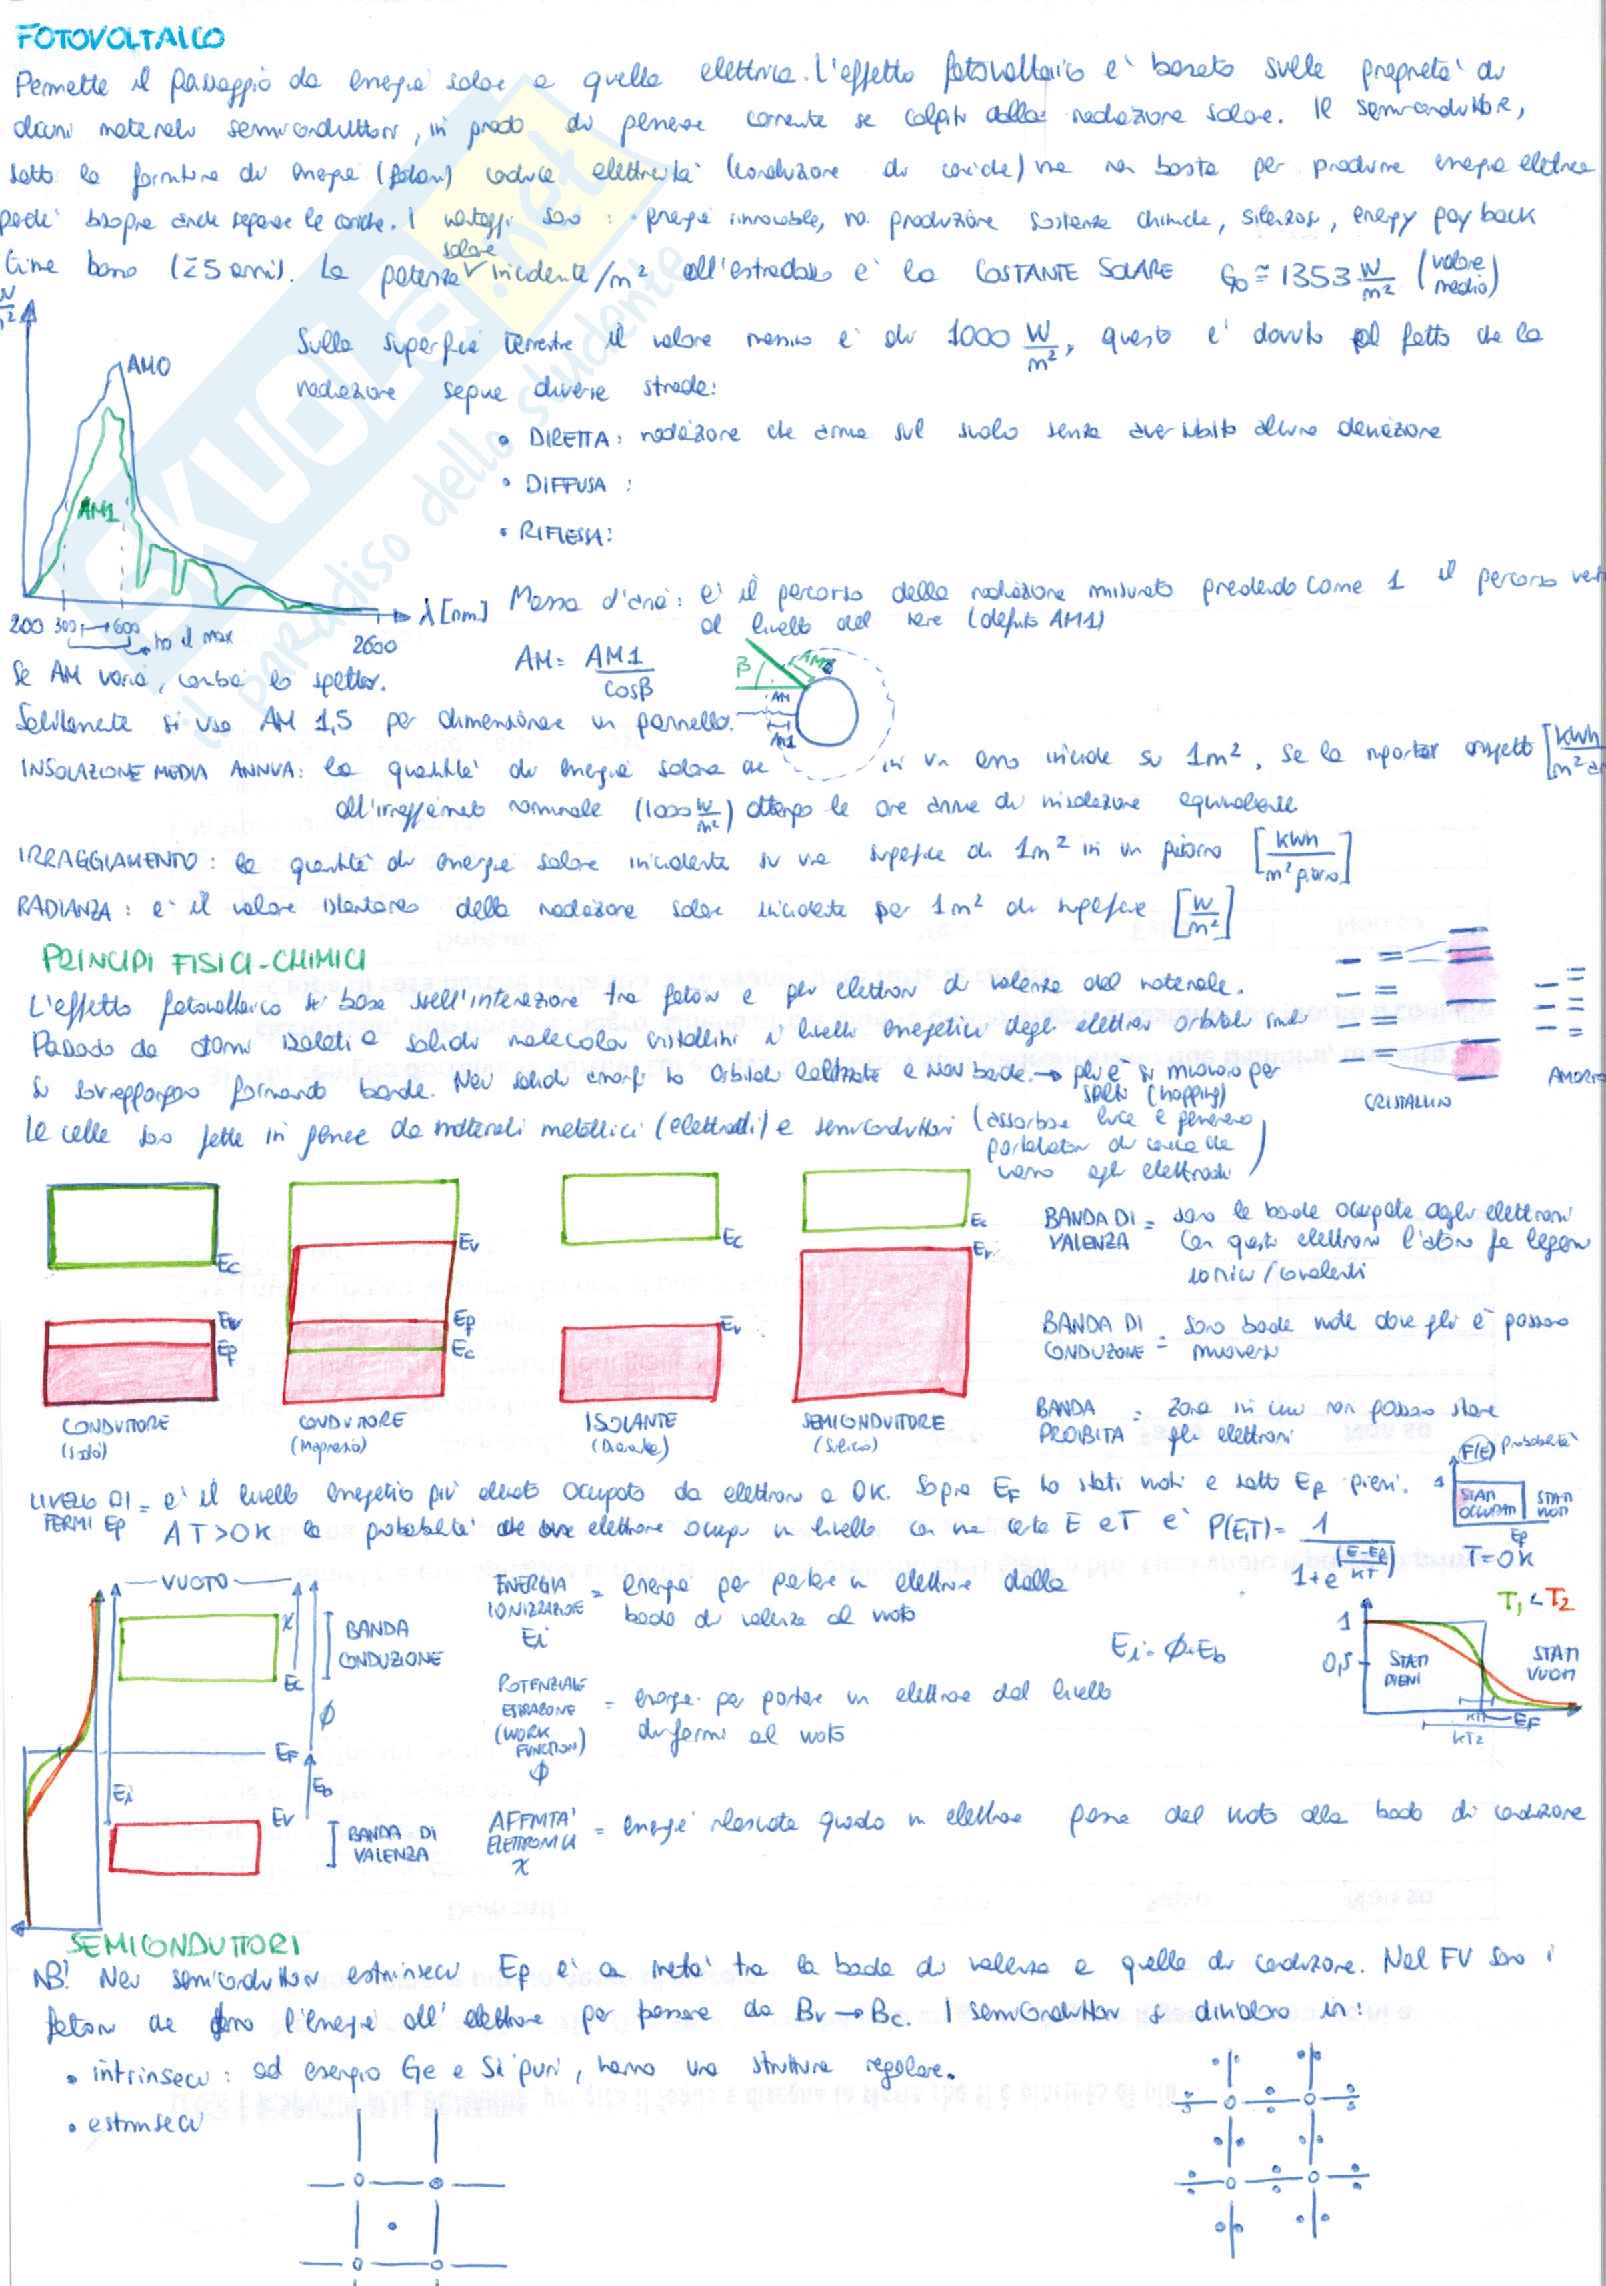 FOTOVOLTAICO
Permette il passaggio da energia solare a quella elettrica. L'effetto fotovoltaico è basato sulle proprietà di
alcuni materiali semiconduttori, in grado di generare corrente se colpiti dalla radiazione solare. Il semiconduttore,
sotto la fornitura di energia (fotoni) conduce elettricità (conduzione di cariche) ma non basta per produrre energia elettrica
perché bisogna anche separare le cariche. I vantaggi sono: energia rinnovabile, no produzione sostanze chimiche, silenziosi, energy pay back
time basso (≃5 anni). La potenza solare incidente/m² all'estradosso è la COSTANTE SOLARE G0 ≅ 1353 W/m² (valore medio)
Sulla superficie terrestre il valore massimo è di 1000 W/m², questo è dovuto al fatto che la
radiazione segue diverse strade:
• DIRETTA: radiazione che arriva sul suolo senza aver subito alcuna deviazione
• DIFFUSA :
• RIFLESSA:
AM0
AM1
200 300 600 ho il max 2600 λ[nm]
Massa d'aria: è il percorso della radiazione misurato prendendo come 1 il percorso
al livello del mare (definito AM1)
AM = AM1/cosβ
β AM AM1
Se AM varia, cambia lo spettro.
Solitamente si usa AM 1,5 per dimensionare un pannello.
INSOLAZIONE MEDIA ANNUA: la quantità di energia solare che in un anno incide su 1m². Se la rapporto rispetto [kWh/m²
all'irraggiamento nominale (1000 W/m²) ottengo le ore annue di insolazione equivalente
IRRAGGIAMENTO: la quantità di energia solare incidente su una superficie di 1m² in un giorno [kWh/m² giorno]
RADIANZA: è il valore istantaneo della radiazione solare incidente per 1m² di superficie [W/m²]
PRINCIPI FISICI-CHIMICI
L'effetto fotovoltaico si basa sull'interazione tra fotoni e gli elettroni di valenza del materiale.
Passando da atomi isolati a solidi molecolari cristallini i livelli energetici degli elettroni orbitali simili
si sovrappongono formando bande. Nei solidi amorfi ho orbitali localizzati e non bande. → gli e⁻ si muovono per
salti (hopping)
CRISTALLINO
AMORFO
Le celle sono fatte in genere da materiali metallici (elettrodi) e semiconduttori (assorbono luce e generano
portatori di carica che
vanno agli elettrodi)
Ec Ev EF
CONDUTTORE
(sodio)
Ev EF Ec
CONDUTTORE
(Magnesio)
Ec Ev
ISOLANTE
(Diamante)
Ec Ev
SEMICONDUTTORE
(Silicio)
BANDA DI VALENZA = sono le bande occupate dagli elettroni
con questi elettroni l'atomo fa legami
ionici/covalenti
BANDA DI CONDUZIONE = sono bande vuote dove gli e⁻ possono
muoversi
BANDA PROIBITA = zona in cui non possono stare
gli elettroni
LIVELLO DI FERMI EF = è il livello energetico più elevato occupato da elettroni a 0K. Sopra EF ho stati vuoti e sotto EF pieni.
A T>0K la probabilità che un elettrone occupi un livello con una certa E e T è P(E,T) = 1/(1+e^((E-EF)/KT))
F(E) probabilità
1 STATI OCCUPATI STATI VUOTI
EF
T=0K
VUOTO
χ
BANDA CONDUZIONE
Ec
Φ
EF
Ei
Eb
Ev
BANDA DI VALENZA
ENERGIA IONIZZAZIONE Ei = energia per portare un elettrone dalla
banda di valenza al vuoto
Ei = Φ+Eb
POTENZIALE ESTRAZIONE (WORK FUNCTION) Φ = energia per portare un elettrone dal livello
di fermi al vuoto
AFFINITA' ELETTRONICA χ = energia rilasciata quando un elettrone passa dal vuoto alla banda di conduzione
T1 < T2
1
0,5 STATI PIENI STATI VUOTI
KT1 EF
KT2
SEMICONDUTTORI
NB! Nei semiconduttori estrinseci EF è a metà tra la banda di valenza e quella di conduzione. Nel FV sono i
fotoni che danno l'energia all'elettrone per passare da Bv→Bc. I semiconduttori si dividono in:
• intrinseci: ad esempio Ge e Si puri, hanno una struttura regolare.
• estrinseci